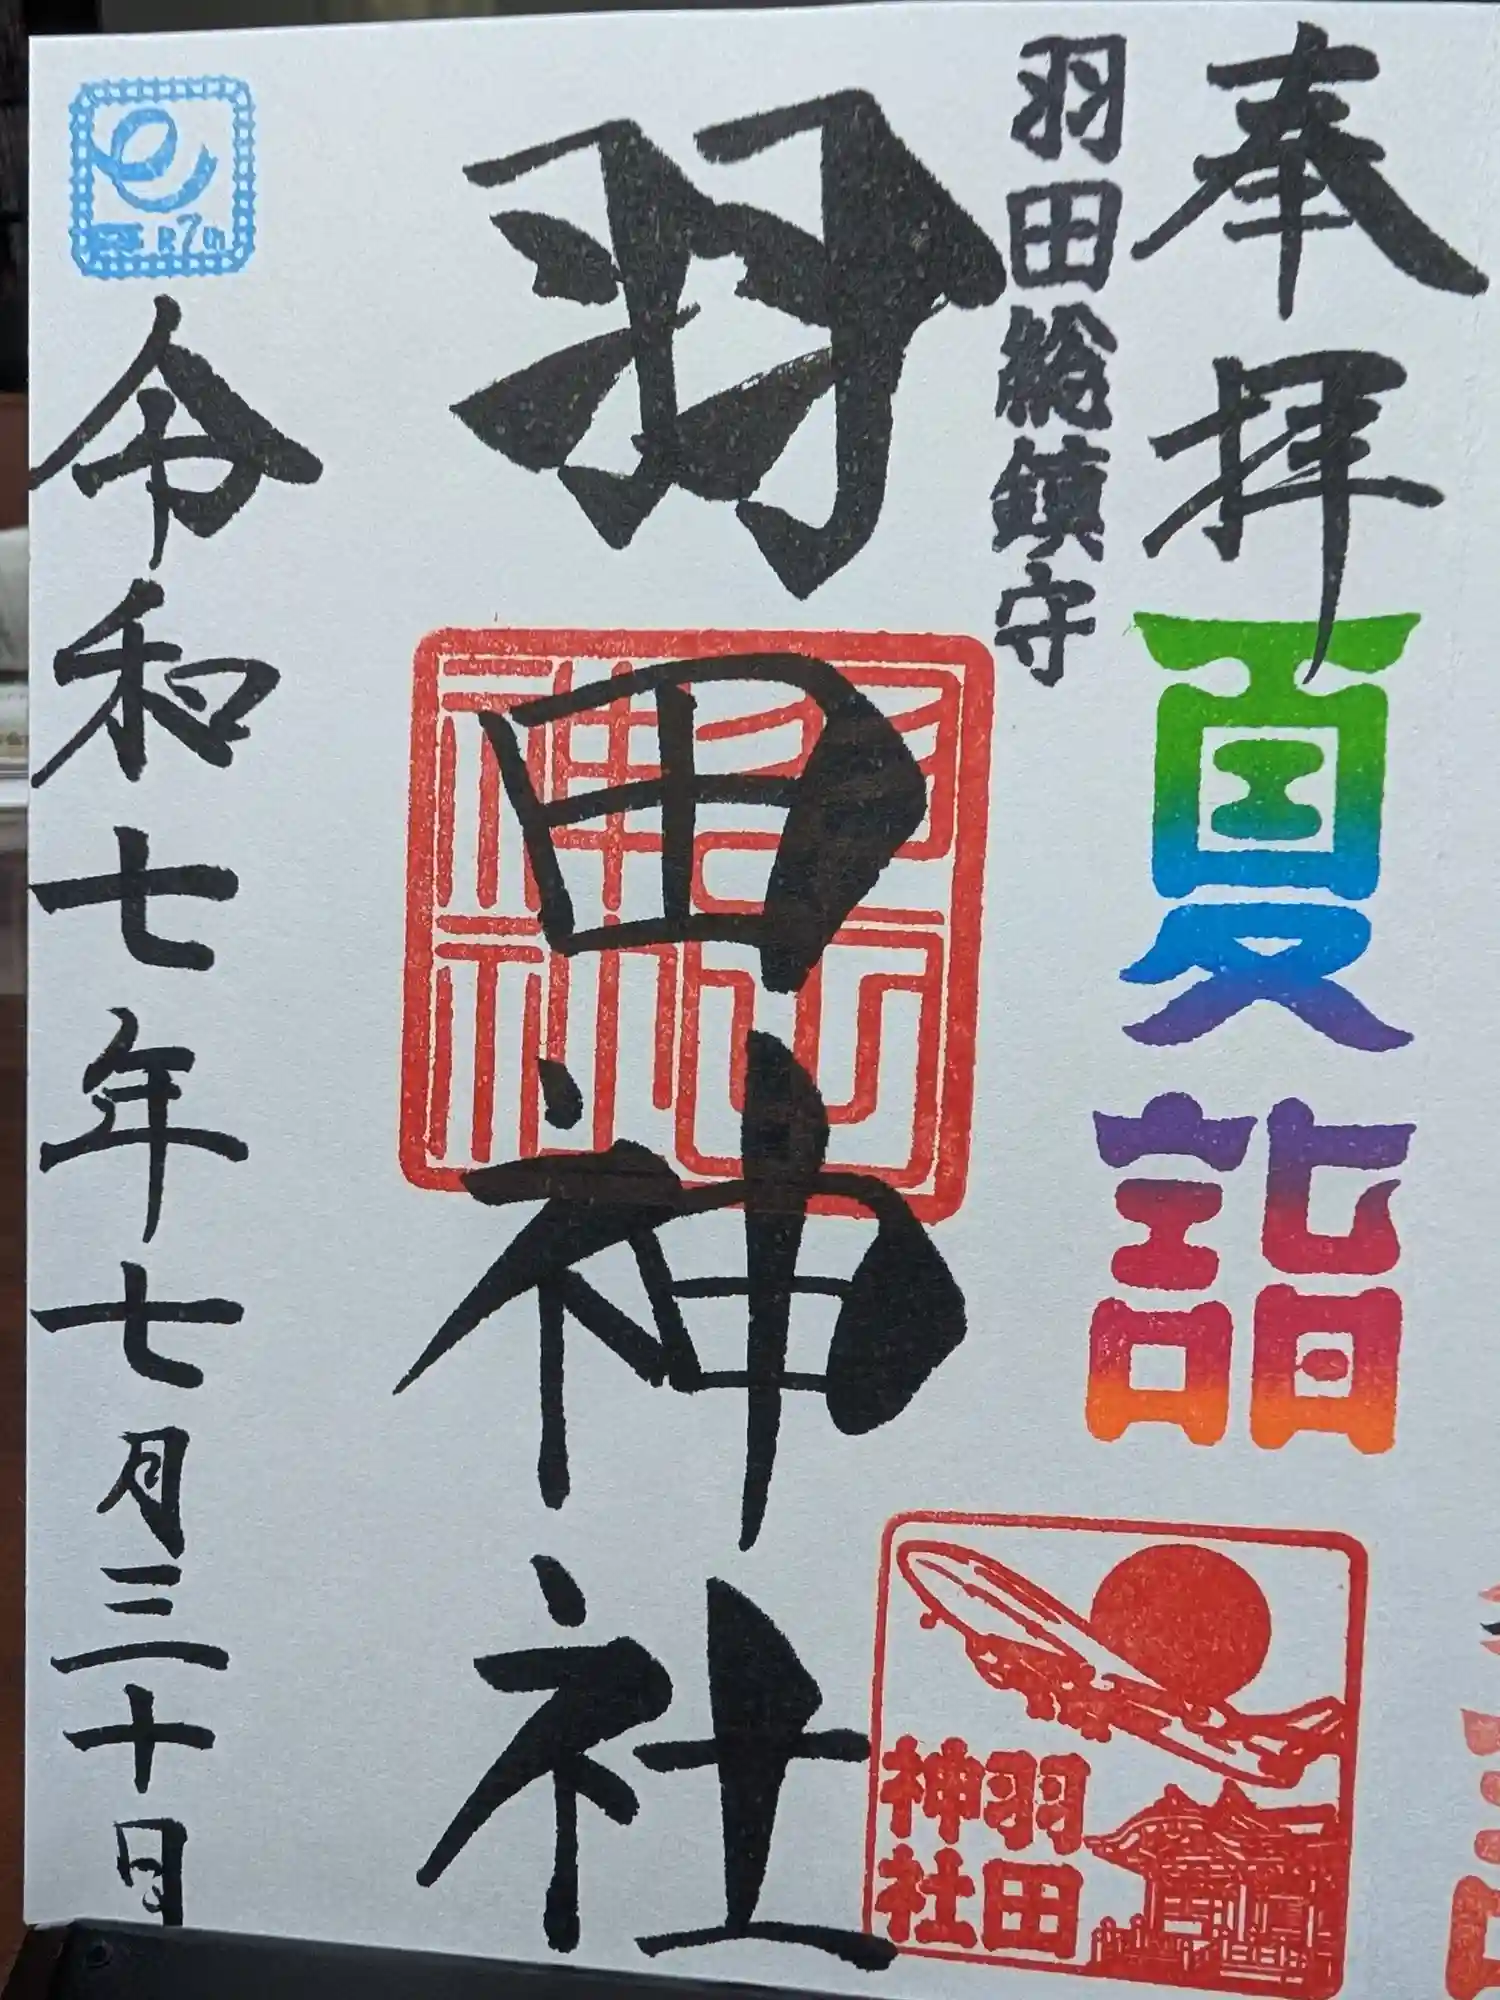 奉拝
夏詣
羽田総鎮守
羽田神社
羽田
神社
7th
令和七年七月三十日